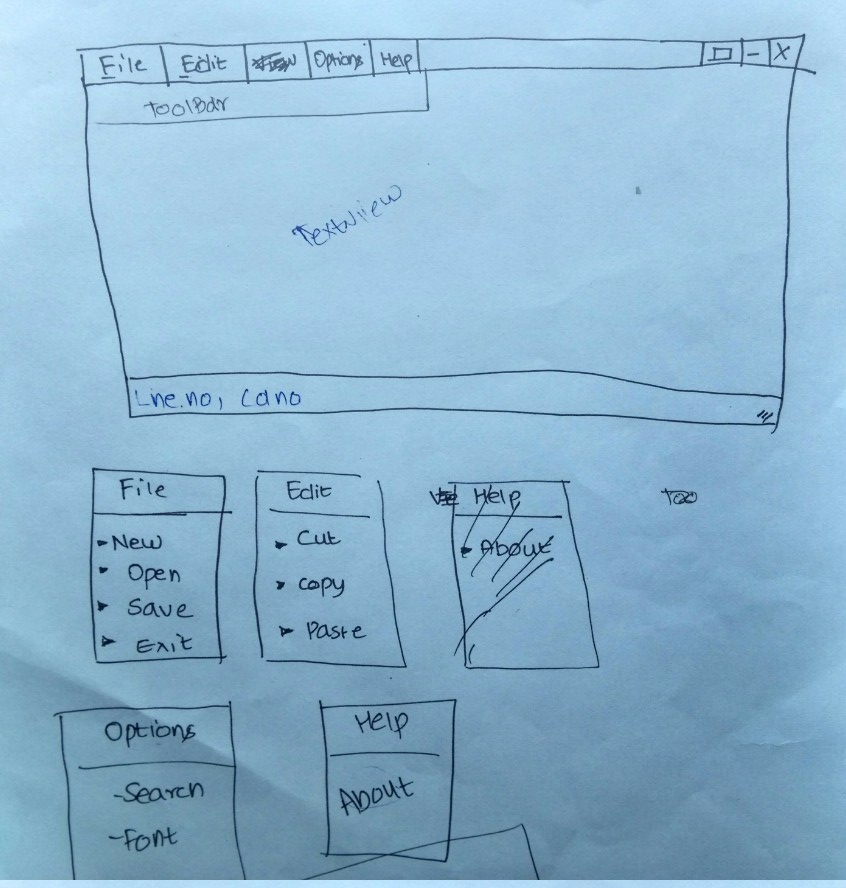 File Edit Options Help X
ToolBar
TextView
Line.no, Col no
File
New
Open
Save
Exit
Edit
Cut
Copy
Paste
Help
About
Too
Options
-Search
-Font
Help
About